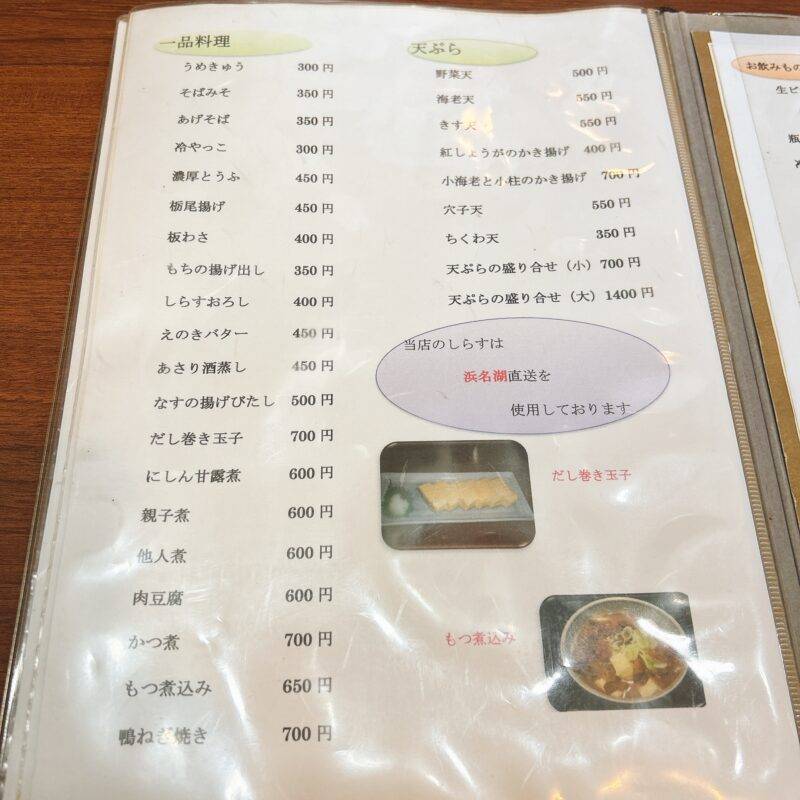 一品料理
うめきゅう 300円
そばみそ 350円
あげそば 350円
冷やっこ 300円
濃厚とうふ 450円
栃尾揚げ 450円
板わさ 400円
もちの揚げ出し 350円
しらすおろし 400円
えのきバター 450円
あさり酒蒸し 450円
なすの揚げびたし 500円
だし巻き玉子 700円
にしん甘露煮 600円
親子煮 600円
他人煮 600円
肉豆腐 600円
かつ煮 700円
もつ煮込み 650円
鴨ねぎ焼き 700円
天ぷら
野菜天 500円
海老天 550円
きす天 550円
紅しょうがのかき揚げ 400円
小海老と小柱のかき揚げ 700円
穴子天 550円
ちくわ天 350円
天ぷらの盛り合せ（小）700円
天ぷらの盛り合せ（大）1400円
当店のしらすは
浜名湖直送を
使用しております
だし巻き玉子
もつ煮込み
お飲みもの
生ビ
瓶